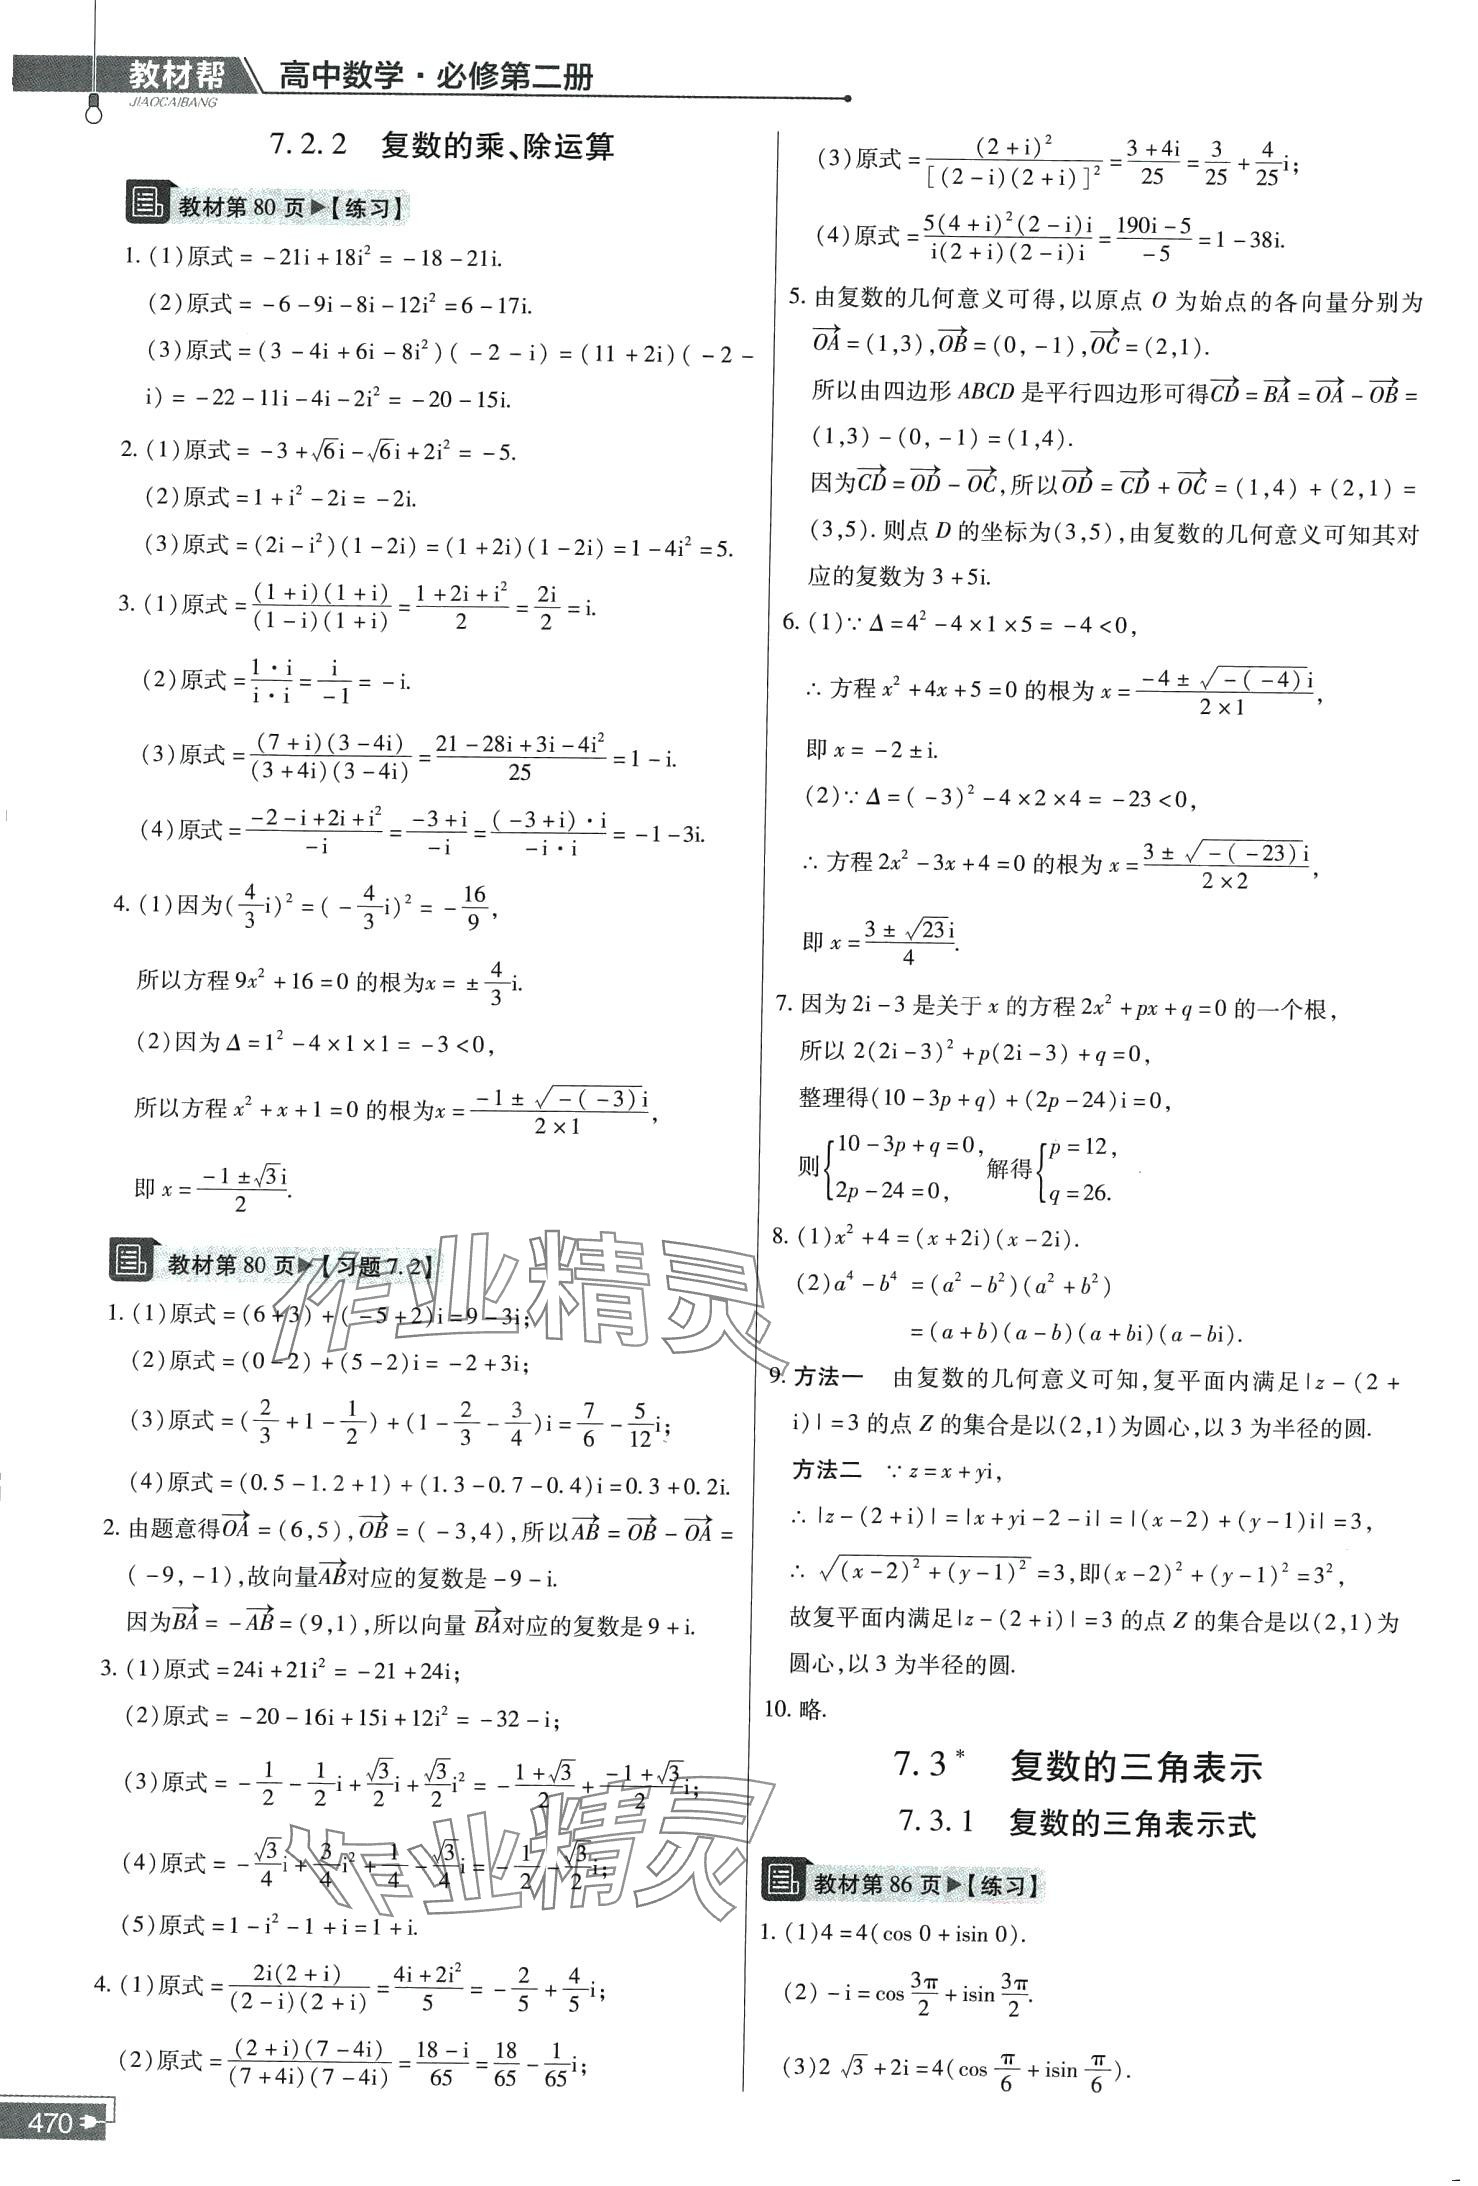 教材帮
JIAOCAIBANG
高中数学·必修第二册
7.2.2 复数的乘、除运算
教材第80页▶【练习】
1. (1)原式=-21i+18i²=-18-21i.
(2)原式=-6-9i-8i-12i²=6-17i.
(3)原式=(3-4i+6i-8i²)(-2-i)=(11+2i)(-2-
i)=-22-11i-4i-2i²=-20-15i.
2. (1)原式=-3+√6i-√6i+2i²=-5.
(2)原式=1+i²-2i=-2i.
(3)原式=(2i-i²)(1-2i)=(1+2i)(1-2i)=1-4i²=5.
3. (1)原式=\frac{(1+i)(1+i)}{(1-i)(1+i)}=\frac{1+2i+i²}{2}=\frac{2i}{2}=i.
(2)原式=\frac{1·i}{i·i}=\frac{i}{-1}=-i.
(3)原式=\frac{(7+i)(3-4i)}{(3+4i)(3-4i)}=\frac{21-28i+3i-4i²}{25}=1-i.
(4)原式=\frac{-2-i+2i+i²}{-i}=\frac{-3+i}{-i}=\frac{(-3+i)·i}{-i·i}=-1-3i.
4. (1)因为(\frac{4}{3}i)²=(-\frac{4}{3}i)²=-\frac{16}{9},
所以方程9x²+16=0的根为x=±\frac{4}{3}i.
(2)因为Δ=1²-4×1×1=-3<0,
所以方程x²+x+1=0的根为x=\frac{-1±\sqrt{-(-3)}i}{2×1},
即x=\frac{-1±√3i}{2}.
教材第80页▶【习题7.2】
1. (1)原式=(6+3)+(-5+2)i=9-3i;
(2)原式=(0-2)+(5-2)i=-2+3i;
(3)原式=(\frac{2}{3}+1-\frac{1}{2})+(1-\frac{2}{3}-\frac{3}{4})i=\frac{7}{6}-\frac{5}{12}i;
(4)原式=(0.5-1.2+1)+(1.3-0.7-0.4)i=0.3+0.2i.
2. 由题意得\overrightarrow{OA}=(6,5),\overrightarrow{OB}=(-3,4),所以\overrightarrow{AB}=\overrightarrow{OB}-\overrightarrow{OA}=
(-9,-1),故向量\overrightarrow{AB}对应的复数是-9-i.
因为\overrightarrow{BA}=-\overrightarrow{AB}=(9,1),所以向量\overrightarrow{BA}对应的复数是9+i.
3. (1)原式=24i+21i²=-21+24i;
(2)原式=-20-16i+15i+12i²=-32-i;
(3)原式=-\frac{1}{2}-\frac{1}{2}i+\frac{√3}{2}i+\frac{√3}{2}i²=-\frac{1+√3}{2}+\frac{-1+√3}{2}i;
(4)原式=-\frac{√3}{4}i+\frac{3}{4}i²+\frac{1}{4}-\frac{√3}{4}i=-\frac{1}{2}-\frac{√3}{2}i;
(5)原式=1-i²-1+i=1+i.
4. (1)原式=\frac{2i(2+i)}{(2-i)(2+i)}=\frac{4i+2i²}{5}=-\frac{2}{5}+\frac{4}{5}i;
(2)原式=\frac{(2+i)(7-4i)}{(7+4i)(7-4i)}=\frac{18-i}{65}=\frac{18}{65}-\frac{1}{65}i;
470
(3)原式=\frac{(2+i)²}{[(2-i)(2+i)]²}=\frac{3+4i}{25}=\frac{3}{25}+\frac{4}{25}i;
(4)原式=\frac{5(4+i)²(2-i)i}{i(2+i)(2-i)i}=\frac{190i-5}{-5}=1-38i.
5. 由复数的几何意义可得,以原点O为始点的各向量分别为
\overrightarrow{OA}=(1,3),\overrightarrow{OB}=(0,-1),\overrightarrow{OC}=(2,1).
所以由四边形ABCD是平行四边形可得\overrightarrow{CD}=\overrightarrow{BA}=\overrightarrow{OA}-\overrightarrow{OB}=
(1,3)-(0,-1)=(1,4).
因为\overrightarrow{CD}=\overrightarrow{OD}-\overrightarrow{OC},所以\overrightarrow{OD}=\overrightarrow{CD}+\overrightarrow{OC}=(1,4)+(2,1)=
(3,5).则点D的坐标为(3,5),由复数的几何意义可知其对
应的复数为3+5i.
6. (1)∵Δ=4²-4×1×5=-4<0,
∴方程x²+4x+5=0的根为x=\frac{-4±\sqrt{-(-4)}i}{2×1},
即x=-2±i.
(2)∵Δ=(-3)²-4×2×4=-23<0,
∴方程2x²-3x+4=0的根为x=\frac{3±\sqrt{-(-23)}i}{2×2},
即x=\frac{3±\sqrt{23}i}{4}.
7. 因为2i-3是关于x的方程2x²+px+q=0的一个根,
所以2(2i-3)²+p(2i-3)+q=0,
整理得(10-3p+q)+(2p-24)i=0,
则{10-3p+q=0, 2p-24=0, 解得{p=12, q=26.
8. (1)x²+4=(x+2i)(x-2i).
(2)a⁴-b⁴=(a²-b²)(a²+b²)
=(a+b)(a-b)(a+bi)(a-bi).
9. 方法一 由复数的几何意义可知,复平面内满足|z-(2+
i)|=3的点Z的集合是以(2,1)为圆心,以3为半径的圆.
方法二 ∵z=x+yi,
∴|z-(2+i)|=|x+yi-2-i|=|(x-2)+(y-1)i|=3,
∴\sqrt{(x-2)²+(y-1)²}=3,即(x-2)²+(y-1)²=3²,
故复平面内满足|z-(2+i)|=3的点Z的集合是以(2,1)为
圆心,以3为半径的圆.
10. 略.
7.3* 复数的三角表示
7.3.1 复数的三角表示式
教材第86页▶【练习】
1. (1)4=4(cos 0+isin 0).
(2)-i=cos\frac{3π}{2}+isin\frac{3π}{2}.
(3)2√3+2i=4(cos\frac{π}{6}+isin\frac{π}{6}).
作业精灵
作业精灵